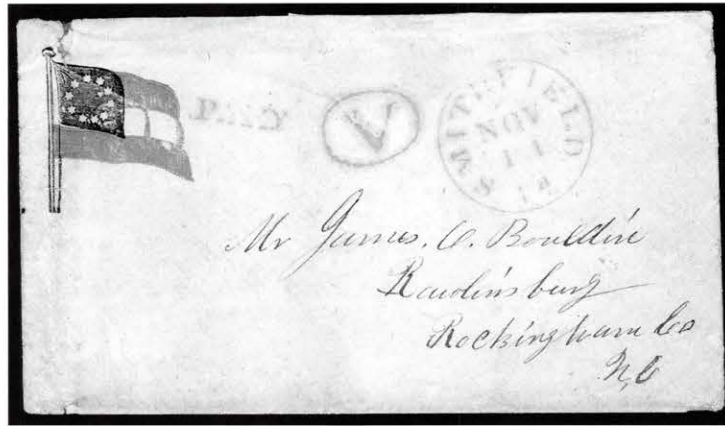 PAID
V
SMITHFIELD
NOV
11
Mr James. C. Bouldin
Rawlinsburg
Rockingham Co
N,C